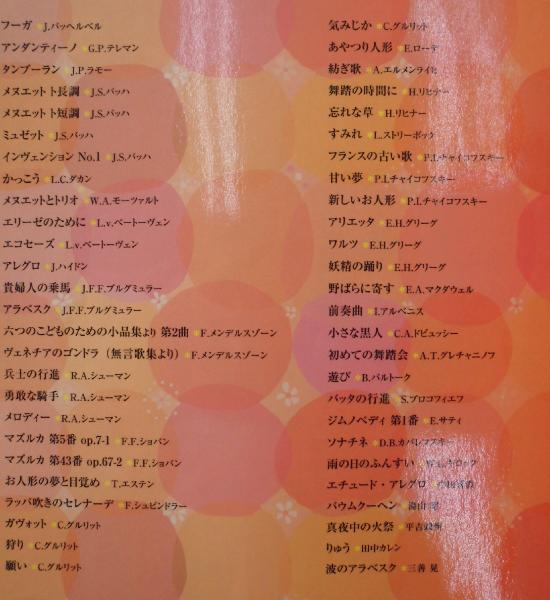 フーガ J.パッヘルベル
アンダンティーノ G.P.テレマン
タンブーラン J.P.ラモー
メヌエット ト長調 J.S.バッハ
メヌエット ト短調 J.S.バッハ
ミュゼット J.S.バッハ
インヴェンション No.1 J.S.バッハ
かっこう L.C.ダカン
メヌエットとトリオ W.A.モーツァルト
エリーゼのために L.v.ベートーヴェン
エコセーズ L.v.ベートーヴェン
アレグロ J.ハイドン
貴婦人の乗馬 J.F.F.ブルグミュラー
アラベスク J.F.F.ブルグミュラー
六つのこどものための小品集より 第2曲 F.メンデルスゾーン
ヴェネチアのゴンドラ（無言歌集より） F.メンデルスゾーン
兵士の行進 R.A.シューマン
勇敢な騎手 R.A.シューマン
メロディー R.A.シューマン
マズルカ 第5番 op.7-1 F.F.ショパン
マズルカ 第43番 op.67-2 F.F.ショパン
お人形の夢と目覚め T.エステン
ラッパ吹きのセレナーデ F.シュピンドラー
ガヴォット C.グルリット
狩り C.グルリット
願い C.グルリット
気みじか C.グルリット
あやつり人形 E.ローデ
紡ぎ歌 A.エルメンライヒ
舞踏の時間に H.リヒナー
忘れな草 H.リヒナー
すみれ L.ストリーボッグ
フランスの古い歌 P.I.チャイコフスキー
甘い夢 P.I.チャイコフスキー
新しいお人形 P.I.チャイコフスキー
アリエッタ E.H.グリーグ
ワルツ E.H.グリーグ
妖精の踊り E.H.グリーグ
野ばらに寄す E.A.マクダウェル
前奏曲 I.アルベニス
小さな黒人 C.A.ドビュッシー
初めての舞踏会 A.T.グレチャニノフ
遊び B.バルトーク
バッタの行進 S.プロコフィエフ
ジムノペディ 第1番 E.サティ
ソナチネ D.B.カバレフスキー
雨の日のふんすい
エチュード・アレグロ
バウムクーヘン 湯山 昭
真夜中の火祭 平吉毅州
りゅう 田中カレン
波のアラベスク 三善 晃